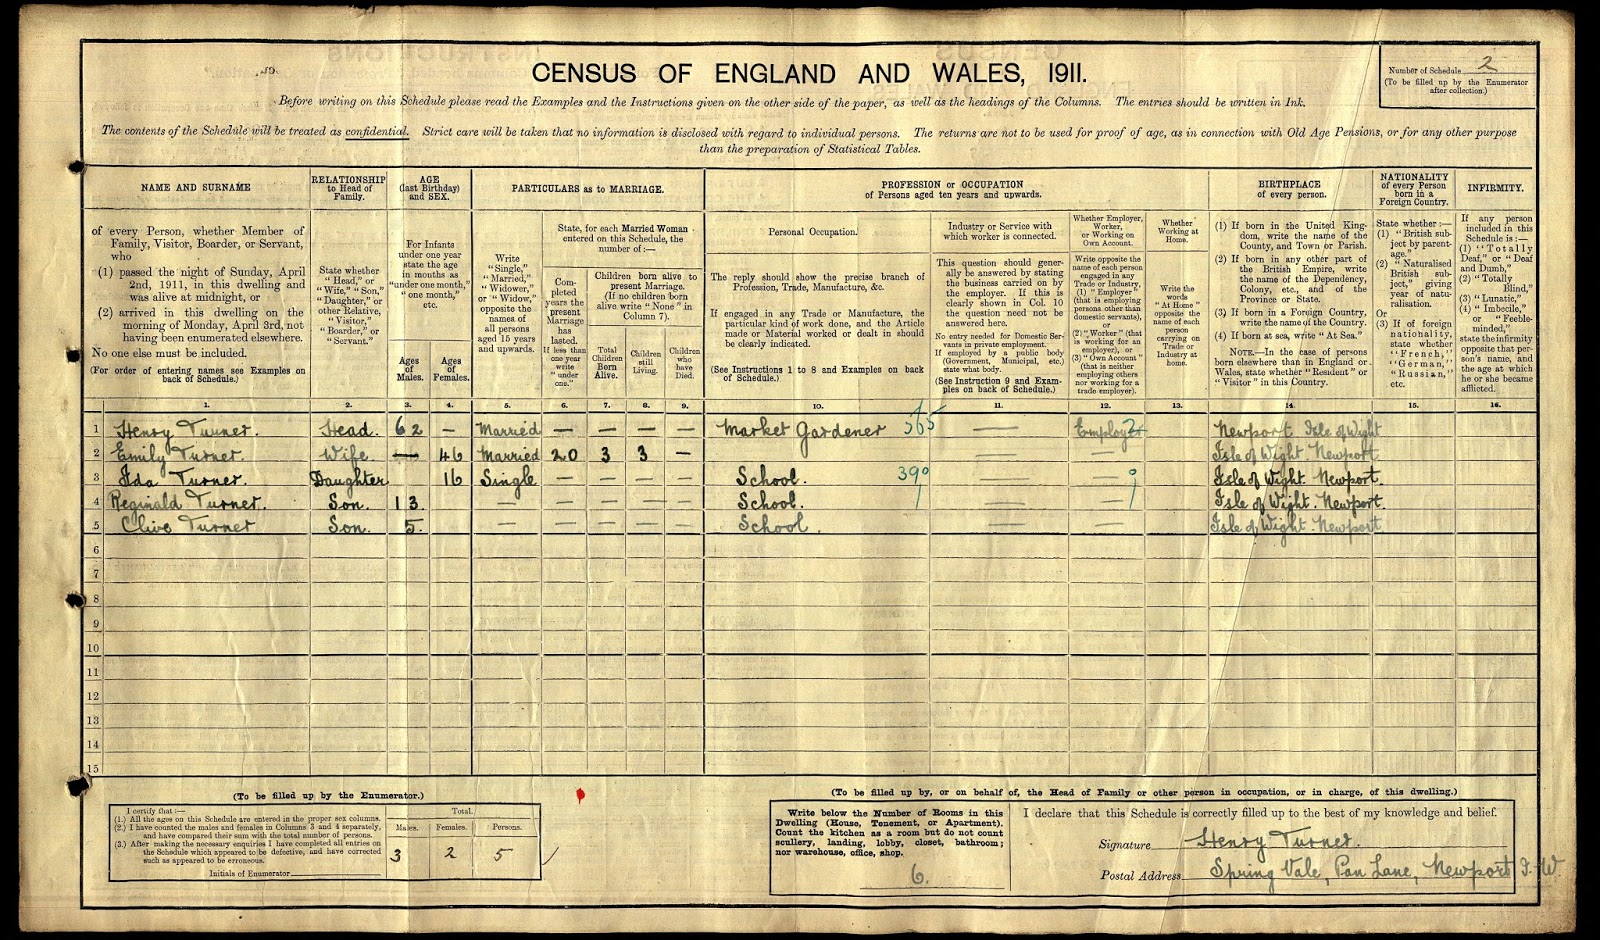 CENSUS OF ENGLAND AND WALES, 1911.
Number of Schedule 2
(To be filled up by the Enumerator
after collection.)
Before writing on this Schedule please read the Examples and the Instructions given on the other side of the paper, as well as the headings of the Columns. The entries should be written in Ink.
The contents of the Schedule will be treated as confidential. Strict care will be taken that no information is disclosed with regard to individual persons. The returns are not to be used for proof of age, as in connection with Old Age Pensions, or for any other purpose
than the preparation of Statistical Tables.
NAME AND SURNAME
of every Person, whether Member of
Family, Visitor, Boarder, or Servant,
who
(1) passed the night of Sunday, April
2nd, 1911, in this dwelling and
was alive at midnight, or
(2) arrived in this dwelling on the
morning of Monday, April 3rd, not
having been enumerated elsewhere.
No one else must be included.
(For order of entering names see Examples on
back of Schedule.)
RELATIONSHIP
to Head of
Family.
State whether
"Head," or
"Wife," "Son,"
"Daughter," or
other Relative,
"Visitor,"
"Boarder," or
"Servant."
AGE
(last Birthday)
and SEX.
For Infants
under one year
state the age
in months as
"under one month,"
"one month,"
etc.
Ages
of
Males.
Ages
of
Females.
PARTICULARS as to MARRIAGE.
Write
"Single,"
"Married,"
"Widower,"
or "Widow,"
opposite the
names of
all persons
aged 15 years
and upwards.
State, for each Married Woman
entered on this Schedule, the
number of:—
Com-
pleted
years the
present
Marriage
has
lasted.
If less than
one year
write
"under
one."
Children born alive to
present Marriage.
(If no children born
alive write "None" in
Column 7).
Total
Children
Born
Alive.
Children
still
Living.
Children
who
have
Died.
PROFESSION or OCCUPATION
of Persons aged ten years and upwards.
Personal Occupation.
The reply should show the precise branch of
Profession, Trade, Manufacture, &c.
If engaged in any Trade or Manufacture, the
particular kind of work done, and the Article
made or Material worked or dealt in should
be clearly indicated.
(See Instructions 1 to 8 and Examples on back
of Schedule.)
Industry or Service with
which worker is connected.
This question should gener-
ally be answered by stating
the business carried on by
the employer. If this is
clearly shown in Col. 10
the question need not be
answered here.
No entry needed for Domestic Ser-
vants in private employment.
If employed by a public body
(Government, Municipal, etc.)
state what body.
(See Instruction 9 and Exam-
ples on back of Schedule.)
Whether Employer,
Worker,
or Working on
Own Account.
Write opposite the
name of each person
engaged in any
Trade or Industry,
(1) "Employer"
(that is employing
persons other than
domestic servants),
or
(2) "Worker" (that
is working for an
employer), or
(3) "Own Account"
(that is neither
employing others
nor working for a
trade employer).
Whether
Working at
Home.
Write the
words
"At Home"
opposite the
name of each
person
carrying on
Trade or
Industry at
home.
BIRTHPLACE
of every person.
(1) If born in the United King-
dom, write the name of the
County, and Town or Parish.
(2) If born in any other part of
the British Empire, write
the name of the Dependency,
Colony, etc., and of the
Province or State.
(3) If born in a Foreign Country,
write the name of the Country.
(4) If born at sea, write "At Sea."
NOTE.—In the case of persons
born elsewhere than in England or
Wales, state whether "Resident" or
"Visitor" in this Country.
NATIONALITY
of every Person
born in a
Foreign Country.
State whether:—
(1) "British sub-
ject by parent-
age."
(2) "Naturalised
British sub-
ject," giving
year of natu-
ralisation.
Or
(3) If of foreign
nationality,
state whether
"French,"
"German,"
"Russian,"
etc.
INFIRMITY.
If any person
included in this
Schedule is:—
(1) "Totally
Deaf," or "Deaf
and Dumb,"
(2) "Totally
Blind,"
(3) "Lunatic,"
(4) "Imbecile,"
or "Feeble-
minded,"
state the infirmity
opposite that per-
son's name, and
the age at which
he or she became
afflicted.
1. 2. 3. 4. 5. 6. 7. 8. 9. 10. 11. 12. 13. 14. 15. 16.
1 Henry Turner. Head. 62 — Married — — — — Market Gardener 365 — Employ Newport Isle of Wight
2 Emily Turner. Wife — 46 Married 20 3 3 — — — Isle of Wight Newport
3 Ida Turner. Daughter 16 Single — — — — School. 390 — — Isle of Wight. Newport.
4 Reginald Turner. Son. 13. — — — — — School. — — Isle of Wight. Newport.
5 Clive Turner Son. 5. — — — — — School. — — Isle of Wight Newport.
6
7
8
9
10
11
12
13
14
15
(To be filled up by the Enumerator.)
I certify that:—
(1.) All the ages on this Schedule are entered in the proper sex columns.
(2.) I have counted the males and females in Columns 3 and 4 separately,
and have compared their sum with the total number of persons.
(3.) After making the necessary enquiries I have completed all entries on
the Schedule which appeared to be defective, and have corrected
such as appeared to be erroneous.
Initials of Enumerator
Total.
Males. Females. Persons.
3 2 5
(To be filled up by, or on behalf of, the Head of Family or other person in occupation, or in charge, of this dwelling.)
Write below the Number of Rooms in this
Dwelling (House, Tenement, or Apartment).
Count the kitchen as a room but do not count
scullery, landing, lobby, closet, bathroom;
nor warehouse, office, shop.
6.
I declare that this Schedule is correctly filled up to the best of my knowledge and belief.
Signature Henry Turner.
Postal Address Spring Vale, Pan Lane, Newport I.W.